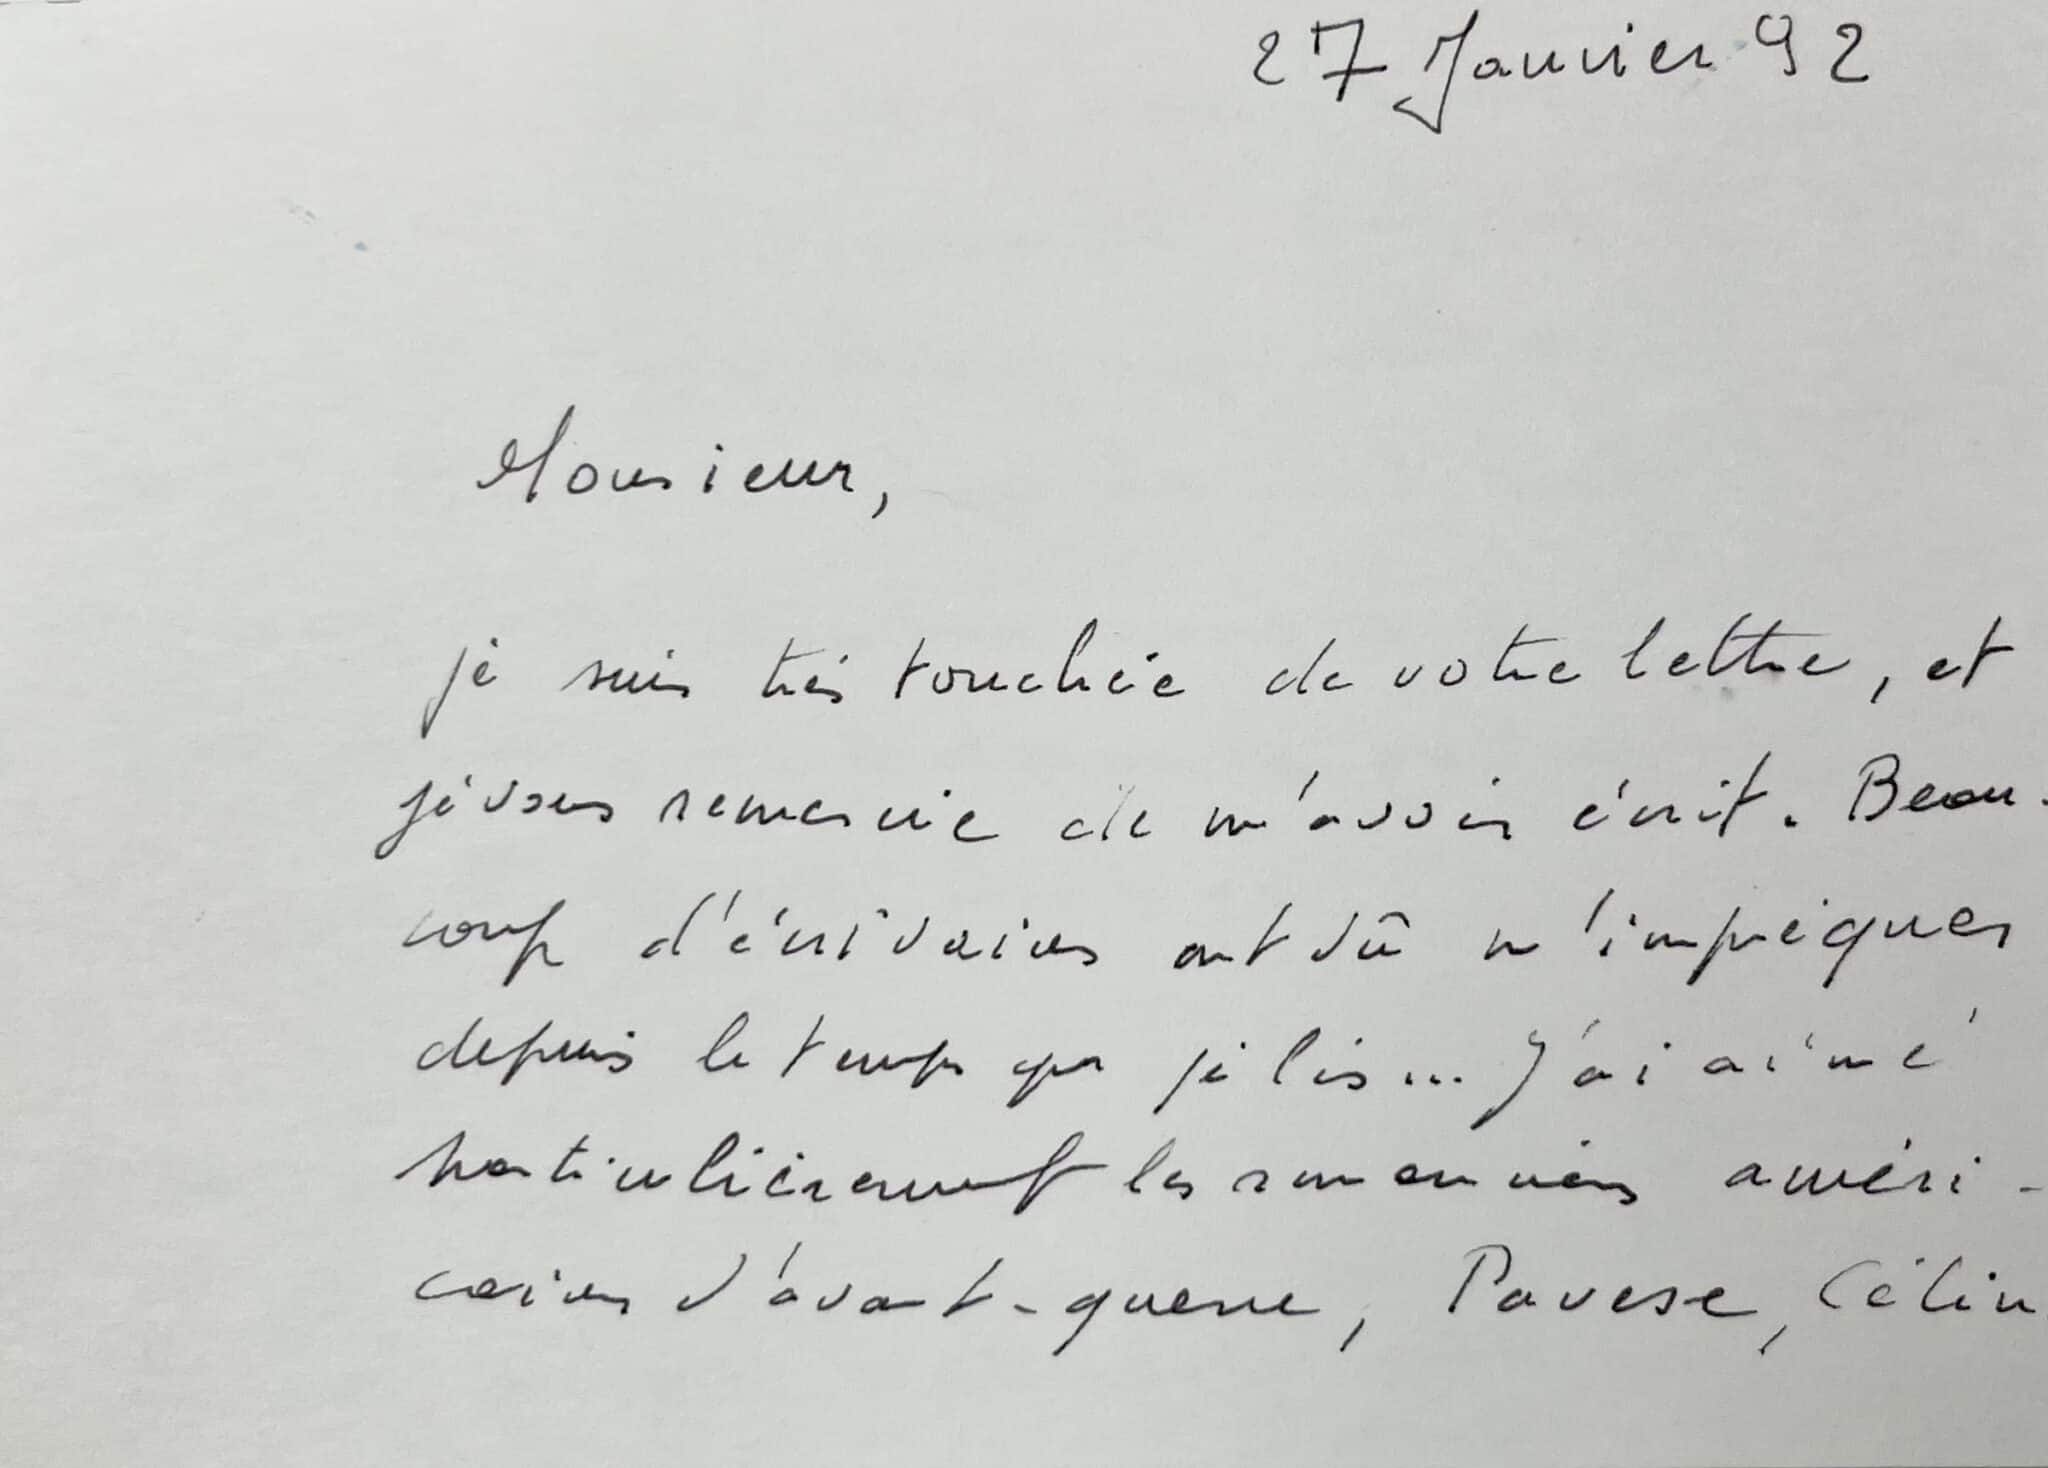 27 Janvier 92
Monsieur,
je suis très touchée de votre lettre, et
je vous remercie de m'avoir écrit. Beau-
coup d'écrivains ont dû m'imprégner
depuis le temps que je lis... J'ai aimé
particulièrement les romanciers améri-
cains d'avant-guerre, Pavese, Célin